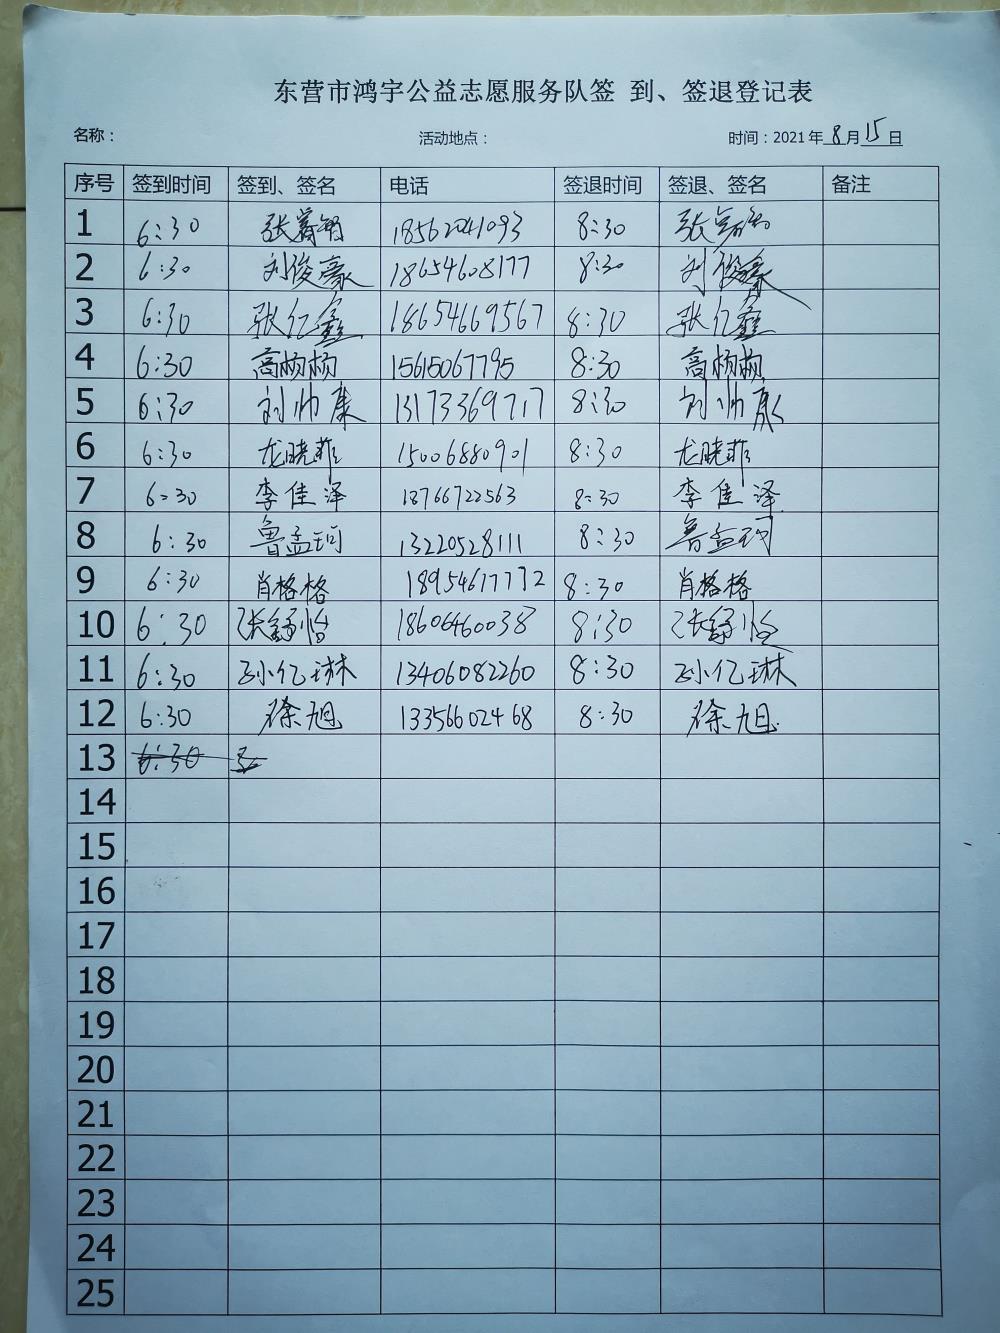 东营市鸿宇公益志愿服务队签 到、签退登记表
名称： 活动地点： 时间：2021年8月15日
序号 签到时间 签到、签名 电话 签退时间 签退、签名 备注
1 6:30 张 18562041093 8:30 张
2 6:30 刘俊豪 18654608177 8:30 刘俊豪
3 6:30 张仁鑫 18654669567 8:30 张仁鑫
4 6:30 高杨杨 15615067795 8:30 高杨杨
5 6:30 刘帅康 13173369717 8:30 刘帅康
6 6:30 龙晓菲 15006880901 8:30 龙晓菲
7 6:30 李佳泽 18766722563 8:30 李佳泽
8 6:30 鲁孟珂 13220528111 8:30 鲁孟珂
9 6:30 肖格格 18954617772 8:30 肖格格
10 6:30 张舒怡 18606460038 8:30 张舒怡
11 6:30 孙亿琳 13406082260 8:30 孙亿琳
12 6:30 徐旭 13356602468 8:30 徐旭
13 6:30
14
15
16
17
18
19
20
21
22
23
24
25